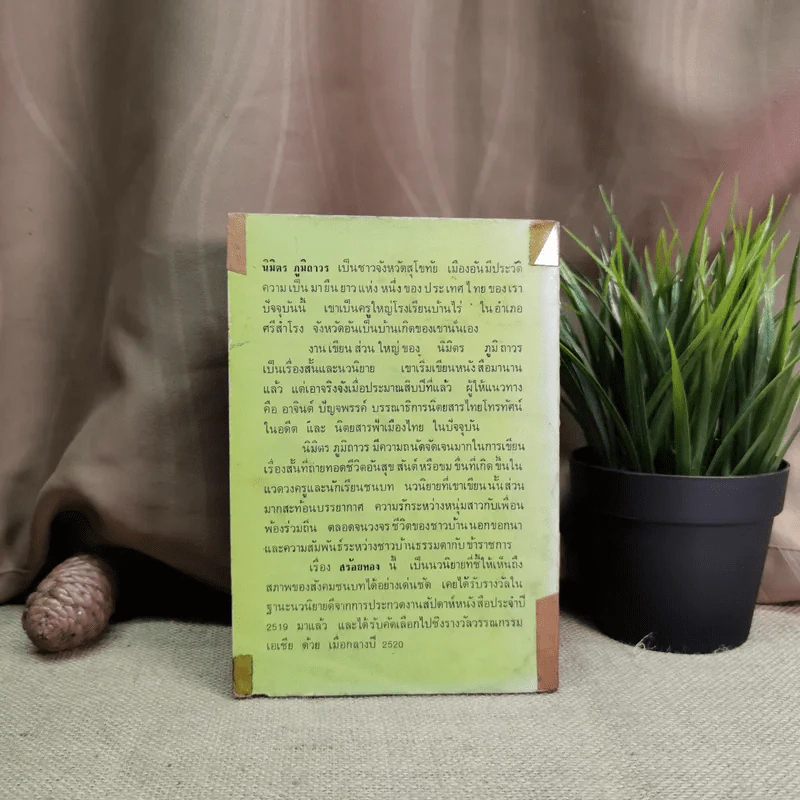 นิมิตร ภูมิถาวร เป็นชาวจังหวัดสุโขทัย เมืองอันมีประวัติ
ความเป็นมายืนยาวแห่งหนึ่งของประเทศไทยของเรา
ปัจจุบันนี้ เขาเป็นครูใหญ่โรงเรียนบ้านไร่ ในอำเภอ
ศรีสำโรง จังหวัดอันเป็นบ้านเกิดของเขานั่นเอง
งานเขียนส่วนใหญ่ของ นิมิตร ภูมิถาวร
เป็นเรื่องสั้นและนวนิยาย เขาเริ่มเขียนหนังสือมานาน
แล้ว แต่เอาจริงจังเมื่อประมาณสิบปีที่แล้ว ผู้ให้แนวทาง
คือ อาจินต์ ปัญจพรรค์ บรรณาธิการนิตยสารไทยโทรทัศน์
ในอดีต และ นิตยสารฟ้าเมืองไทย ในปัจจุบัน
นิมิตร ภูมิถาวร มีความถนัดจัดเจนมากในการเขียน
เรื่องสั้นที่ถ่ายทอดชีวิตอันสุขสันต์หรือขมขื่นที่เกิดขึ้นใน
แวดวงครูและนักเรียนชนบท นวนิยายที่เขาเขียนนั้นส่วน
มากสะท้อนบรรยากาศ ความรักระหว่างหนุ่มสาวกับเพื่อน
พ้องร่วมถิ่น ตลอดจนวงจรชีวิตของชาวบ้านนอกขอกนา
และความสัมพันธ์ระหว่างชาวบ้านธรรมดากับข้าราชการ
เรื่อง สร้อยทอง นี้ เป็นนวนิยายที่ชี้ให้เห็นถึง
สภาพของสังคมชนบทได้อย่างเด่นชัด เคยได้รับรางวัลใน
ฐานะนวนิยายดีจากการประกวดงานสัปดาห์หนังสือประจำปี
2519 มาแล้ว และได้รับคัดเลือกไปชิงรางวัลวรรณกรรม
เอเชีย ด้วย เมื่อกลางปี 2520